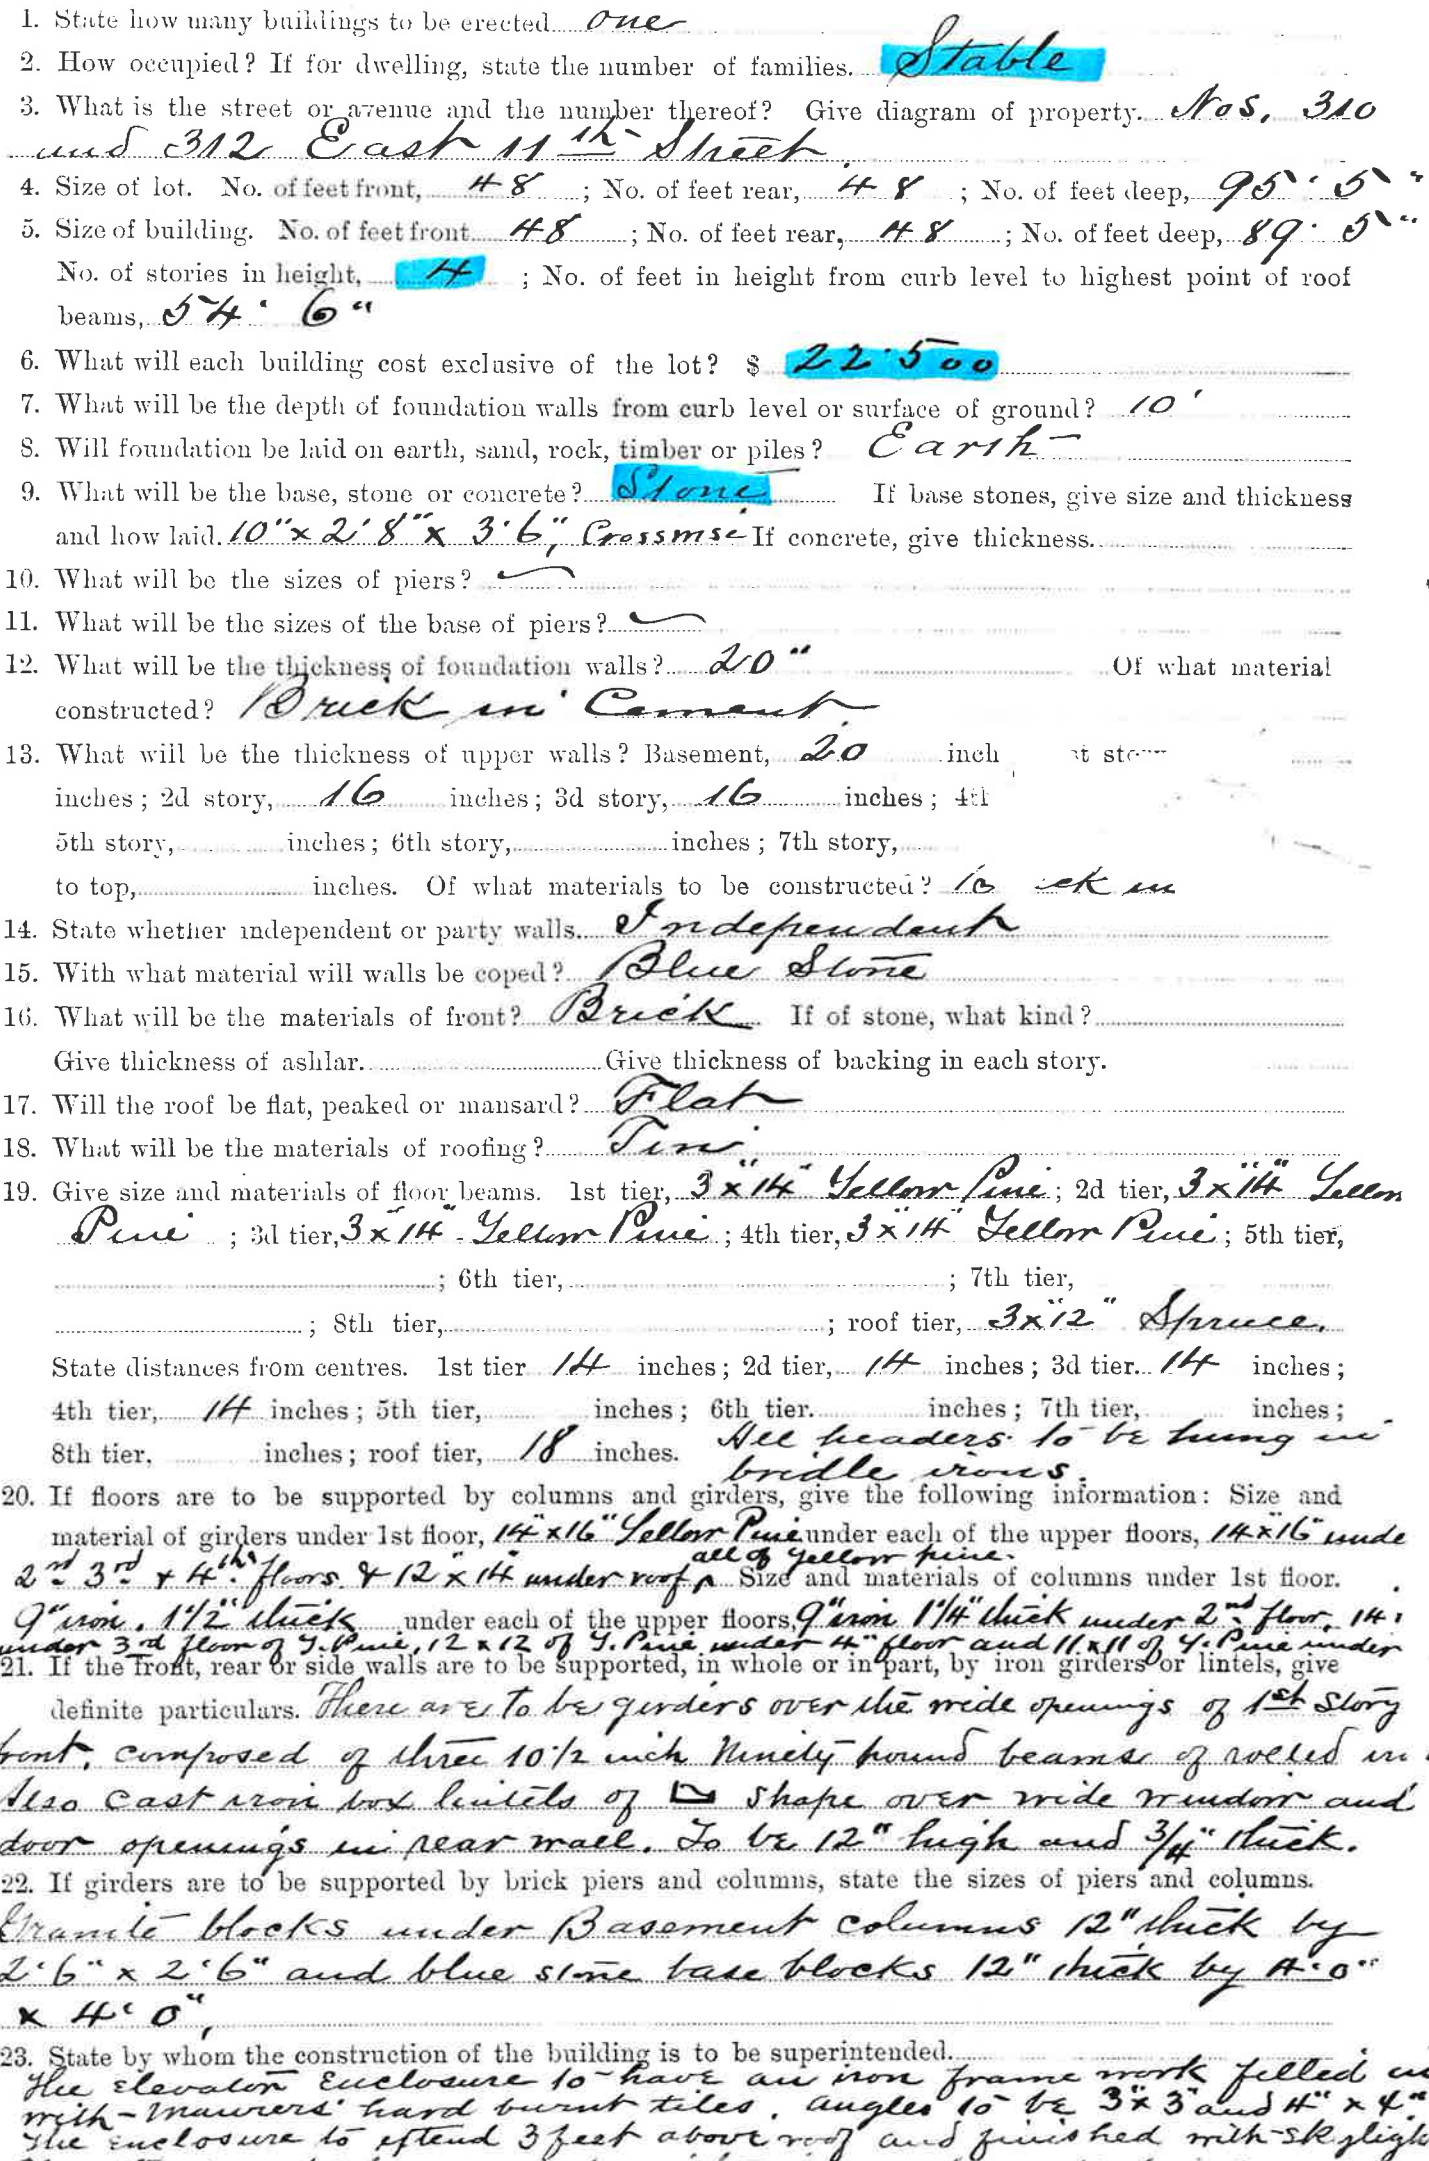 1. State how many buildings to be erected one
2. How occupied? If for dwelling, state the number of families. Stable
3. What is the street or avenue and the number thereof? Give diagram of property. Nos. 310
and 312 East 11th Street.
4. Size of lot. No. of feet front, 48 ; No. of feet rear, 48 ; No. of feet deep, 95' 5"
5. Size of building. No. of feet front 48 ; No. of feet rear, 48 ; No. of feet deep, 89' 5"
No. of stories in height, 4 ; No. of feet in height from curb level to highest point of roof
beams, 54' 6"
6. What will each building cost exclusive of the lot? $ 22.500
7. What will be the depth of foundation walls from curb level or surface of ground? 10'
8. Will foundation be laid on earth, sand, rock, timber or piles? Earth
9. What will be the base, stone or concrete? Stone If base stones, give size and thickness
and how laid. 10" x 2' 8" x 3' 6", Crosswise If concrete, give thickness.
10. What will be the sizes of piers?
11. What will be the sizes of the base of piers?
12. What will be the thickness of foundation walls? 20" Of what material
constructed? Brick in Cement
13. What will be the thickness of upper walls? Basement, 20 inch
inches; 2d story, 16 inches; 3d story, 16 inches;
5th story, inches; 6th story, inches; 7th story,
to top, inches. Of what materials to be constructed? in
14. State whether independent or party walls. Independent
15. With what material will walls be coped? Blue Stone
16. What will be the materials of front? Brick If of stone, what kind?
Give thickness of ashlar. Give thickness of backing in each story.
17. Will the roof be flat, peaked or mansard? Flat
18. What will be the materials of roofing? Tin
19. Give size and materials of floor beams. 1st tier, 3" x 14" Yellow Pine; 2d tier, 3" x 14" Yellow
Pine ; 3d tier, 3" x 14" - Yellow Pine; 4th tier, 3" x 14" Yellow Pine; 5th tier,
; 6th tier, ; 7th tier,
; 8th tier, ; roof tier, 3" x 12" Spruce.
State distances from centres. 1st tier 14 inches; 2d tier, 14 inches; 3d tier. 14 inches;
4th tier, 14 inches; 5th tier, inches; 6th tier. inches; 7th tier, inches;
8th tier, inches; roof tier, 18 inches. All headers to be hung in
bridle irons.
20. If floors are to be supported by columns and girders, give the following information: Size and
material of girders under 1st floor, 14" x 16" Yellow Pine under each of the upper floors, 14" x 16" unde
all of yellow pine.
2nd 3rd & 4th floors & 12" x 14" under roof ^ Size and materials of columns under 1st floor.
9" iron, 1 1/2" thick under each of the upper floors, 9" iron 1 1/4" thick under 2nd floor, 14
under 3rd floor of Y. Pine, 12 x 12 of Y. Pine under 4th floor and 11 x 11 of Y. Pine under
21. If the front, rear or side walls are to be supported, in whole or in part, by iron girders or lintels, give
definite particulars. There are to be girders over the wide openings of 1st Story
front, composed of three 10 1/2 inch Ninety pound beams of rolled
Also cast iron box lintels of shape over wide window and
door openings in rear wall. To be 12" high and 3/4" thick.
22. If girders are to be supported by brick piers and columns, state the sizes of piers and columns.
Granite blocks under Basement columns 12" thick by
2' 6" x 2' 6" and blue stone base blocks 12" thick by 4' 0"
x 4' 0",
23. State by whom the construction of the building is to be superintended.
The elevator enclosure to have an iron frame work filled in
with Maurers' hard burnt tiles. angles to be 3" x 3" and 4" x 4"
The enclosure to extend 3 feet above roof and finished with skyligh